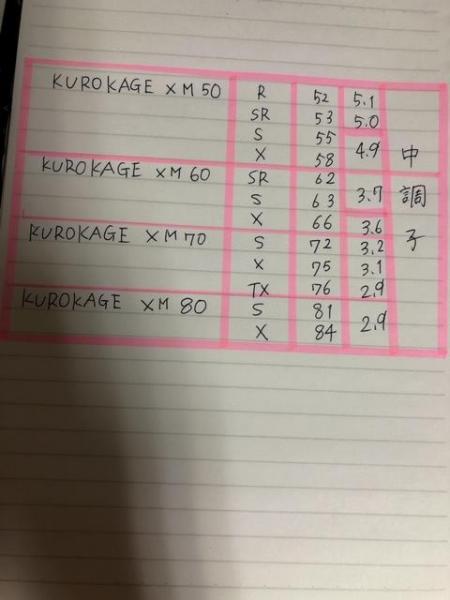 KUROKAGE XM50 R 52 5.1
SR 53 5.0
S 55
X 58 4.9
KUROKAGE XM60 SR 62
S 63 3.7
X 66 3.6
KUROKAGE XM70 S 72 3.2
X 75 3.1
TX 76 2.9
KUROKAGE XM80 S 81
X 84 2.9
中調子